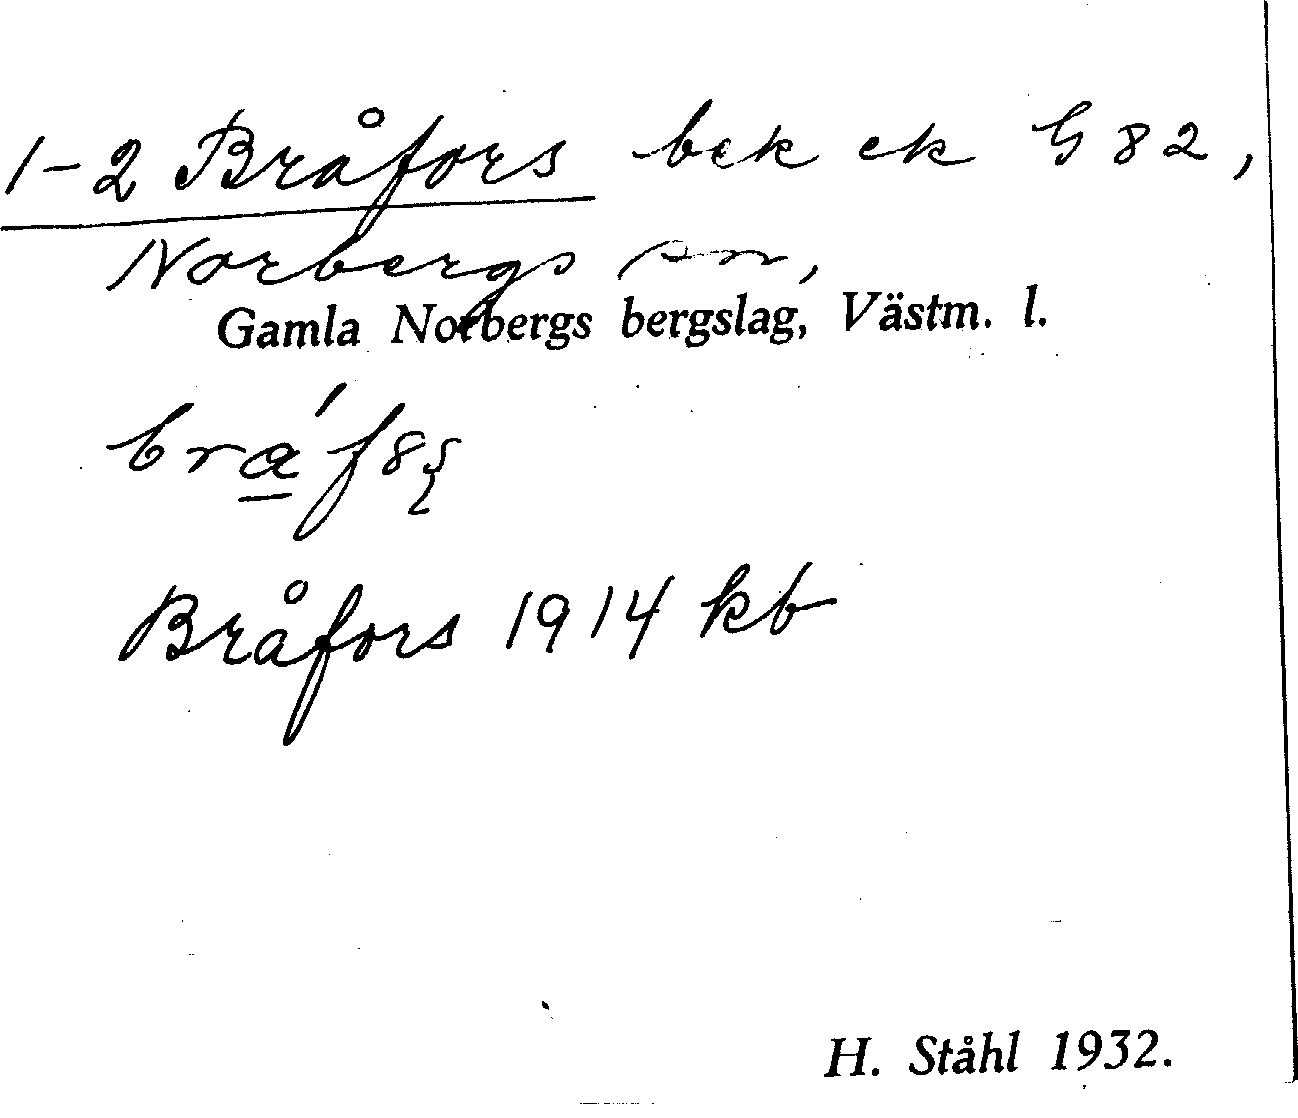 1-2 Bråfors bek ek G 82,
Norbergs sn,
Gamla Norbergs bergslag, Västm. l.
Bråfors 1914 kb
H. Ståhl 1932.